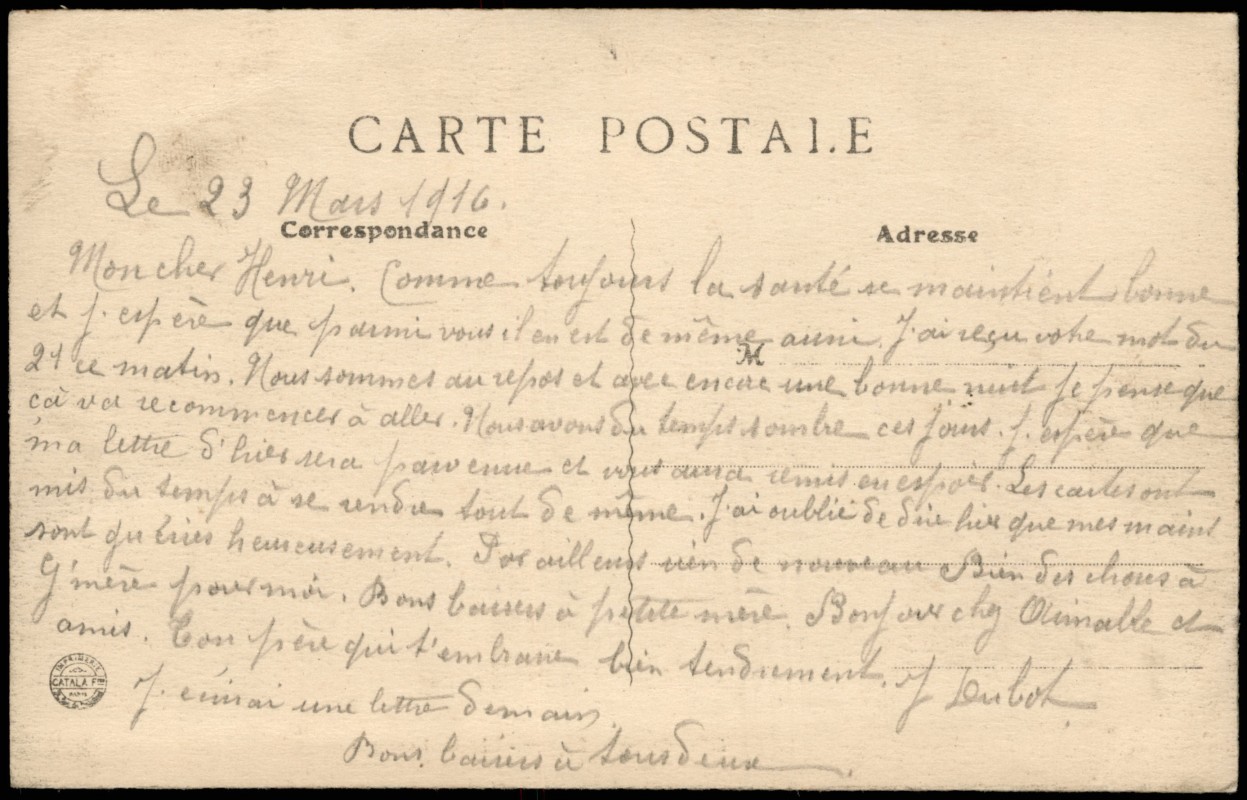 CARTE POSTALE
Le 23 Mars 1916.
Correspondance
Adresse
Mon cher Henri. Comme toujours la santé se maintient bonne
et j'espère que parmi vous il en est de même aussi. J'ai reçu votre mot du
21 ce matin. Nous sommes au repos et avec encore une bonne nuit je pense que
M
cà va recommencer à aller. Nous avons du temps sombre ces jours. J'espère que
ma lettre d'hier sera parvenue et vous aura remis en espoir. Les cartes ont
mis du temps à se rendre tout de même. J'ai oublié de dire hier que mes mains
sont guéries heureusement. Par ailleurs rien de nouveau Bien des choses à
G'mère pour moi. Bons baisers à petite mère. Bonjour chez Aimable et
amis. Ton père qui t'embrasse bien tendrement. J Dubot
J'écrirai une lettre demain.
Bons baisers à tous deux.
IMPRIMERIE
CATALA Fres